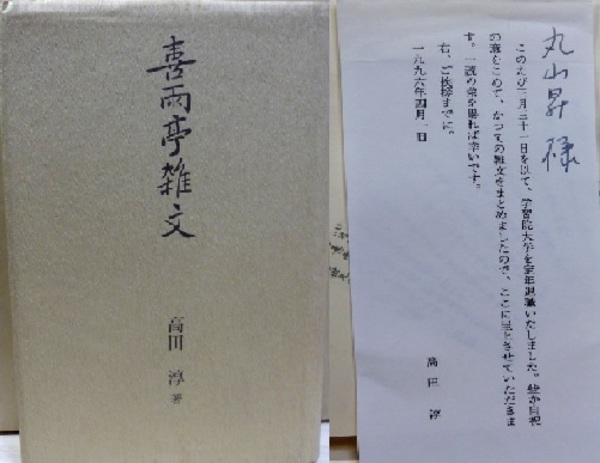 喜雨亭雑文
高田 淳 著
丸山昇様
このたび三月三十一日を以て、学習院大学を定年退職いたしました。些か自祝
の意をこめて、かつての雑文をまとめましたので、ここに呈上させていただきま
す。一読の栄を賜れば幸いです。
右、ご挨拶までに。
一九九六年四月一日
高田 淳